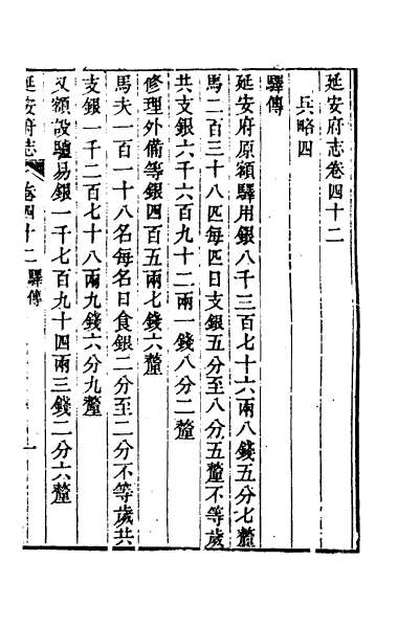 延安府志卷四十二
兵略四
驛傳
延安府原額驛用銀八千三百七十六兩八錢五分七釐
馬二百三十八匹每匹日支銀五分至八分五釐不等歲
共支銀六千六百九十二兩一錢八分二釐
修理外備等銀四百五兩七錢六釐
馬夫一百一十八名每名日食銀二分至二分不等歲共
支銀一千二百七十八兩九錢六分九釐
又額設驢易銀一千七百九十四兩三錢二分六釐
延安府志 卷四十二 驛傳 一